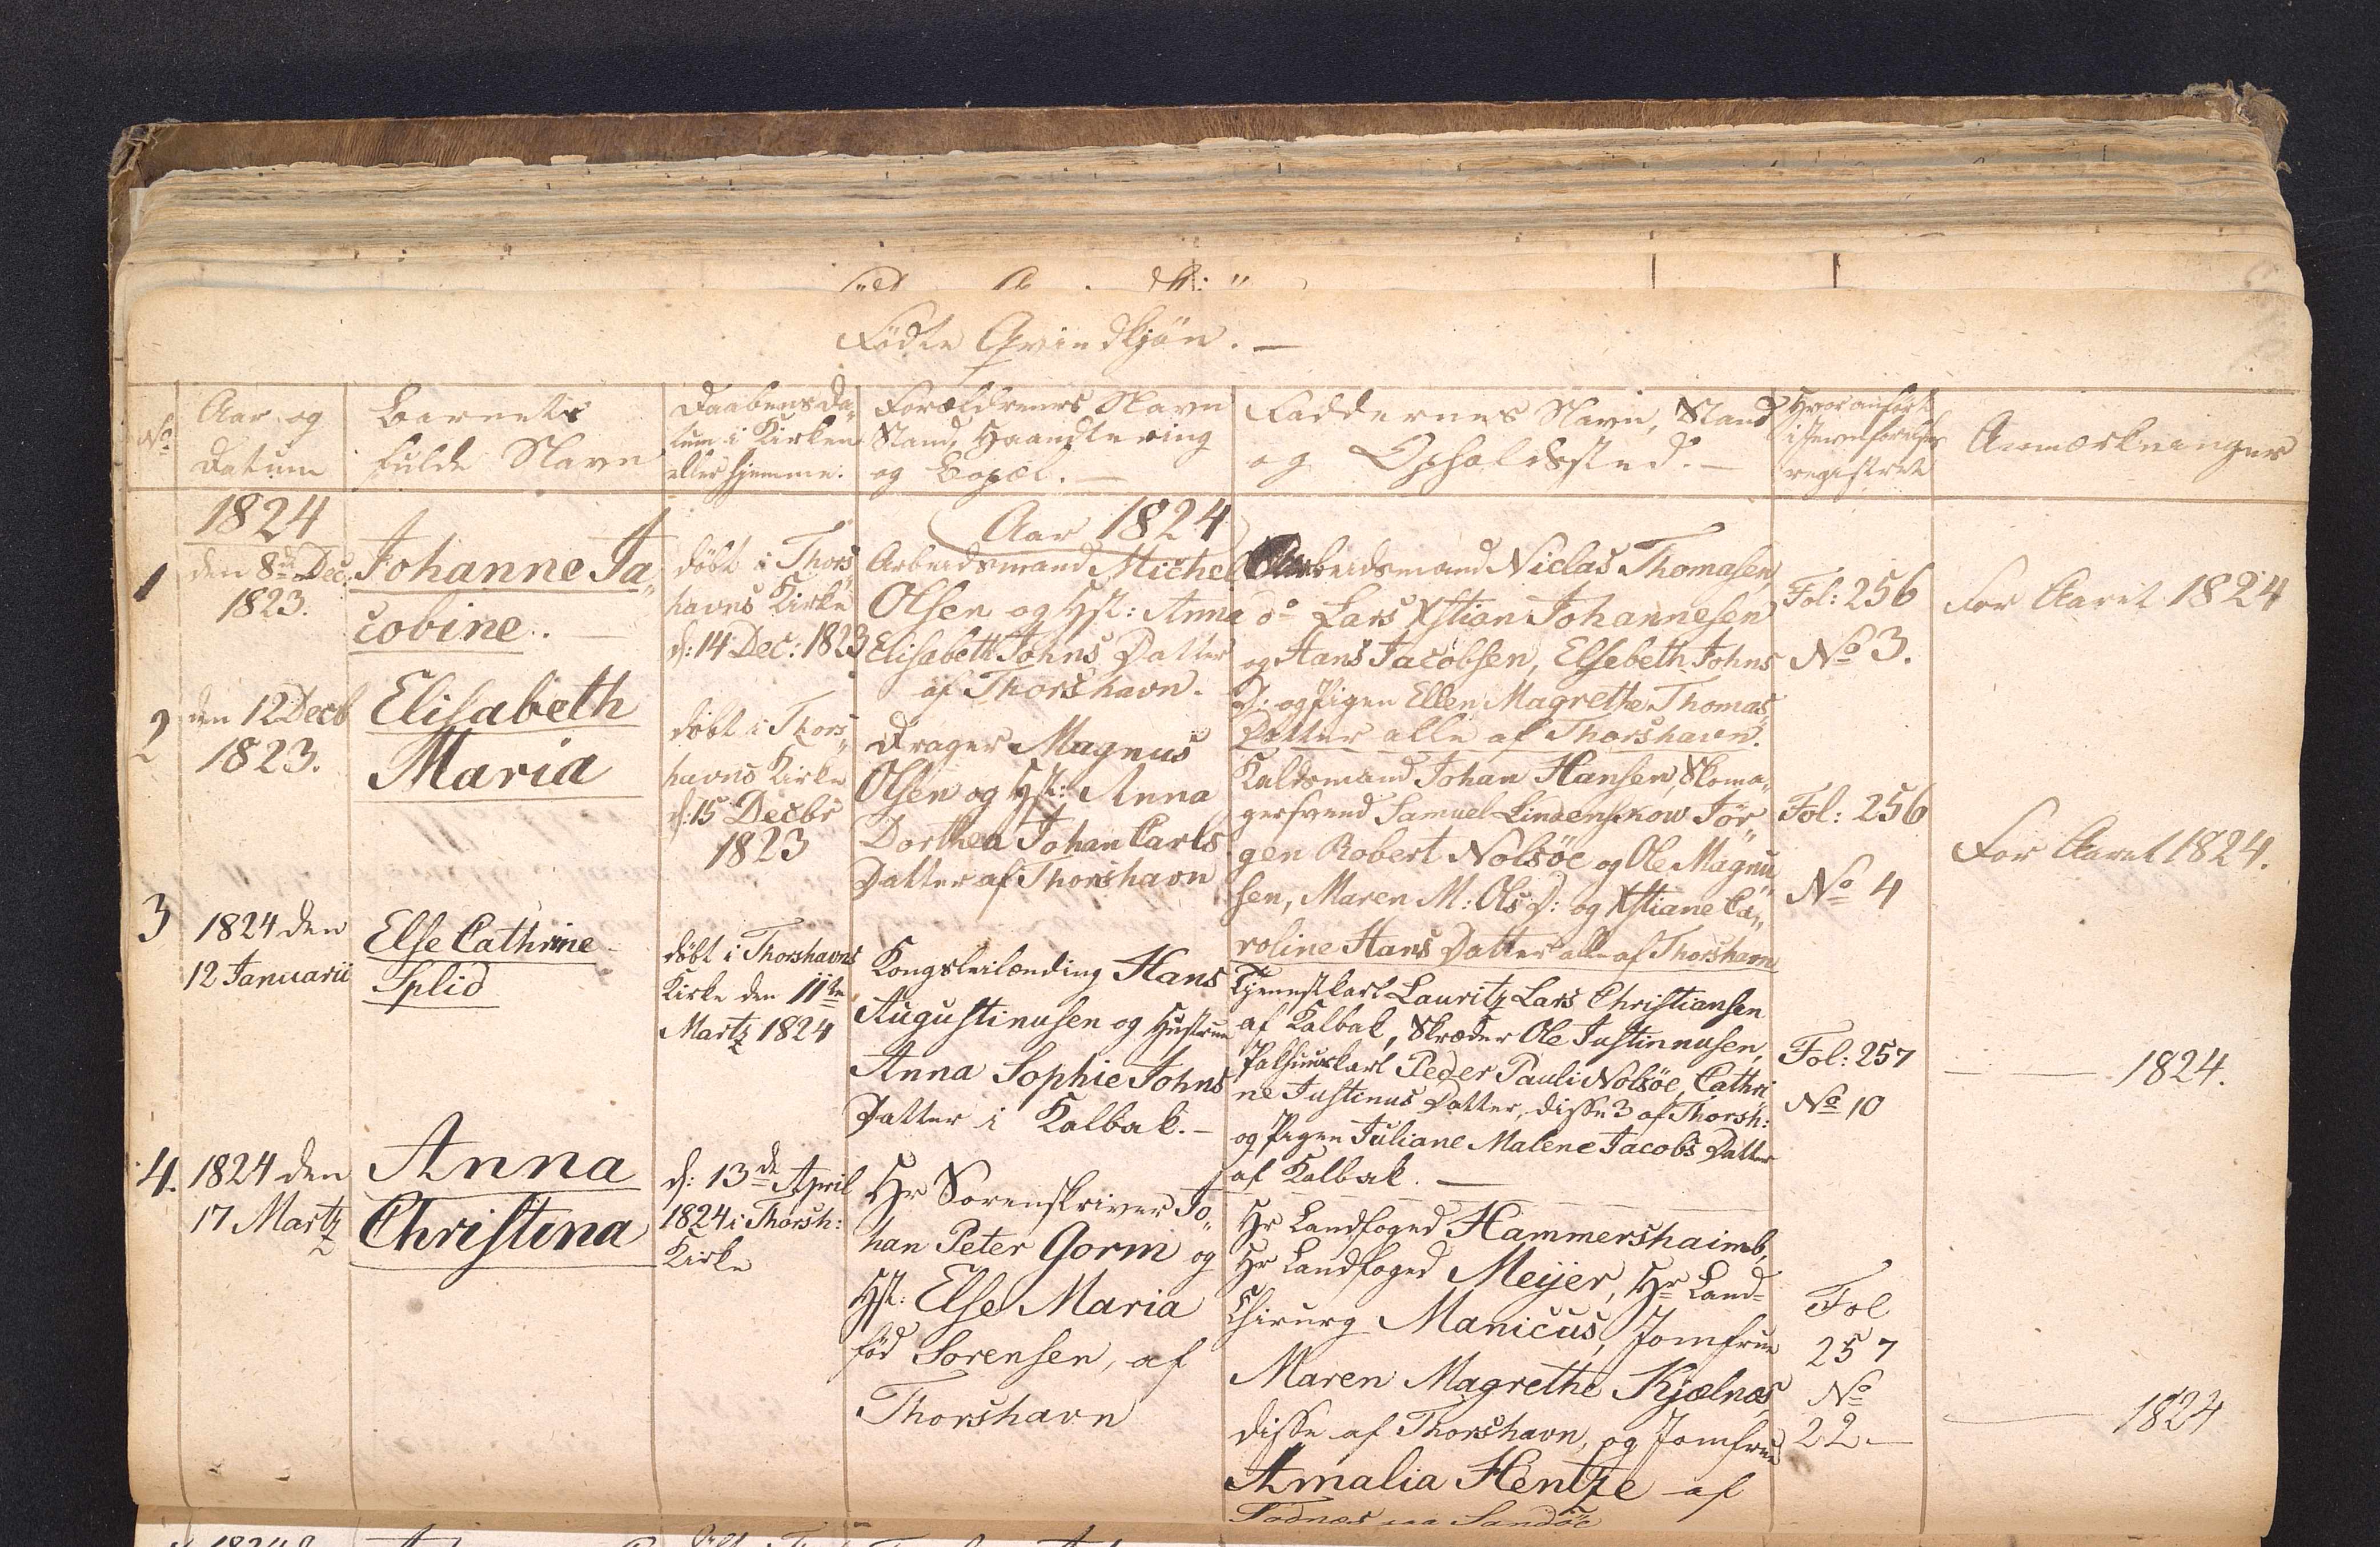 Födte Qvindkjön. —
No
Aar og
Datum
Barnets
fulde Navn
Daabens Da„
tum i Kirken
eller hjemme.
Forældrenes Navn
Stand, Haandtering
og Bopæl. —
Faddernes Navn, Stand
og Opholdssted. —
Hvor anført
i Jevnførelses
registret
Anmærkninger
1824
Aar 1824
1
den 8de Dec.
1823.
Johanne Ja„
cobine. —
döbt i Thors„
havns Kirke
d: 14 Dec: 1823
Arbeidsmand Michel
Olsen og Hst: Anna
Elisabeth Johns Datter
af Thorshavn.
Arbeidsmand Niclas Thomasen,
do Lars Xstian Johannesen
og Hans Jacobsen, Elsebeth Johns
D: og Pigen Ellen Magrethe Thomas„
Datter alle af Thorshavn.
Fol: 256
No 3.
For Aaret 1824
2
den 12 Decb
1823.
Elisabeth
Maria
döbt i Thors„
havns Kirke
d: 15 Decbr
1823
Drager Magnus
Olsen og Hst: Anna
Dorthea Johan Carls
Datter af Thorshavn
Kaldsmand Johan Hansen, Skoma„
gersvend Samuel Lindenskow Jör„
gen Robert Nolsöe og Ole Magnu„
sen, Maren M: Ols D: og Xstiane Ca„
roline Hans Datter alle af Thorshavn
Fol: 256
No 4
For Aaret 1824.
3
1824 den
12 Januarii
Else Cathrine
Splid
döbt i Thorshavns
Kirke den 11te
Martz 1824
Kongsleilænding Hans
Augustinusen og Hustrue
Anna Sophie Johns
Datter i Kalbak. —
Tjenestkarl Lauritz Lars Christiansen
af Kalbak, Skræder Ole Justinnusen,
Pakhuuskarl Peder Pauli Nolsöe, Cathri„
ne Justinus Datter, disse 3 af Thorsh:
og Pigen Juliane Malene Jacobs Datter
af Kalbak. —
Fol: 257
No 10
— — 1824.
4.
1824 den
17 Martz
Anna
Christina
d: 13de April
1824 i Thorsh:
Kirke
Hr Sorenskriver Jo„
han Peter Gorm og
Hst: Else Maria
fød Sorensen, af
Thorshavn
Hr Landfoged Hammershaimb,
Hr Landfoged Meijer, Hr Land=
Chirurg Manicus, Jomfrue
Maren Magrethe Kjælnæs,
disse af Thorshavn, og Jomfrue
Amalia Hentze af
Fol
257
No
22 —
— 1824